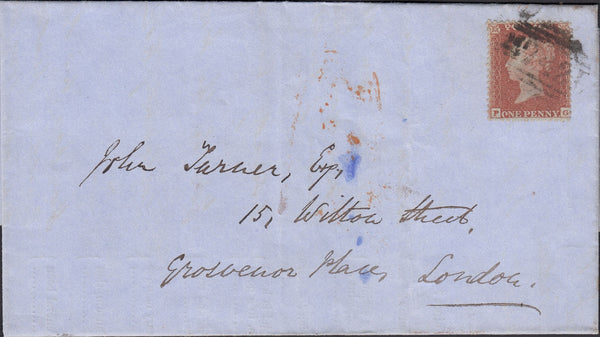 ONE PENNY
P G
John Turner, Esq,
15, Wilton Street,
Grosvenor Place,
London.